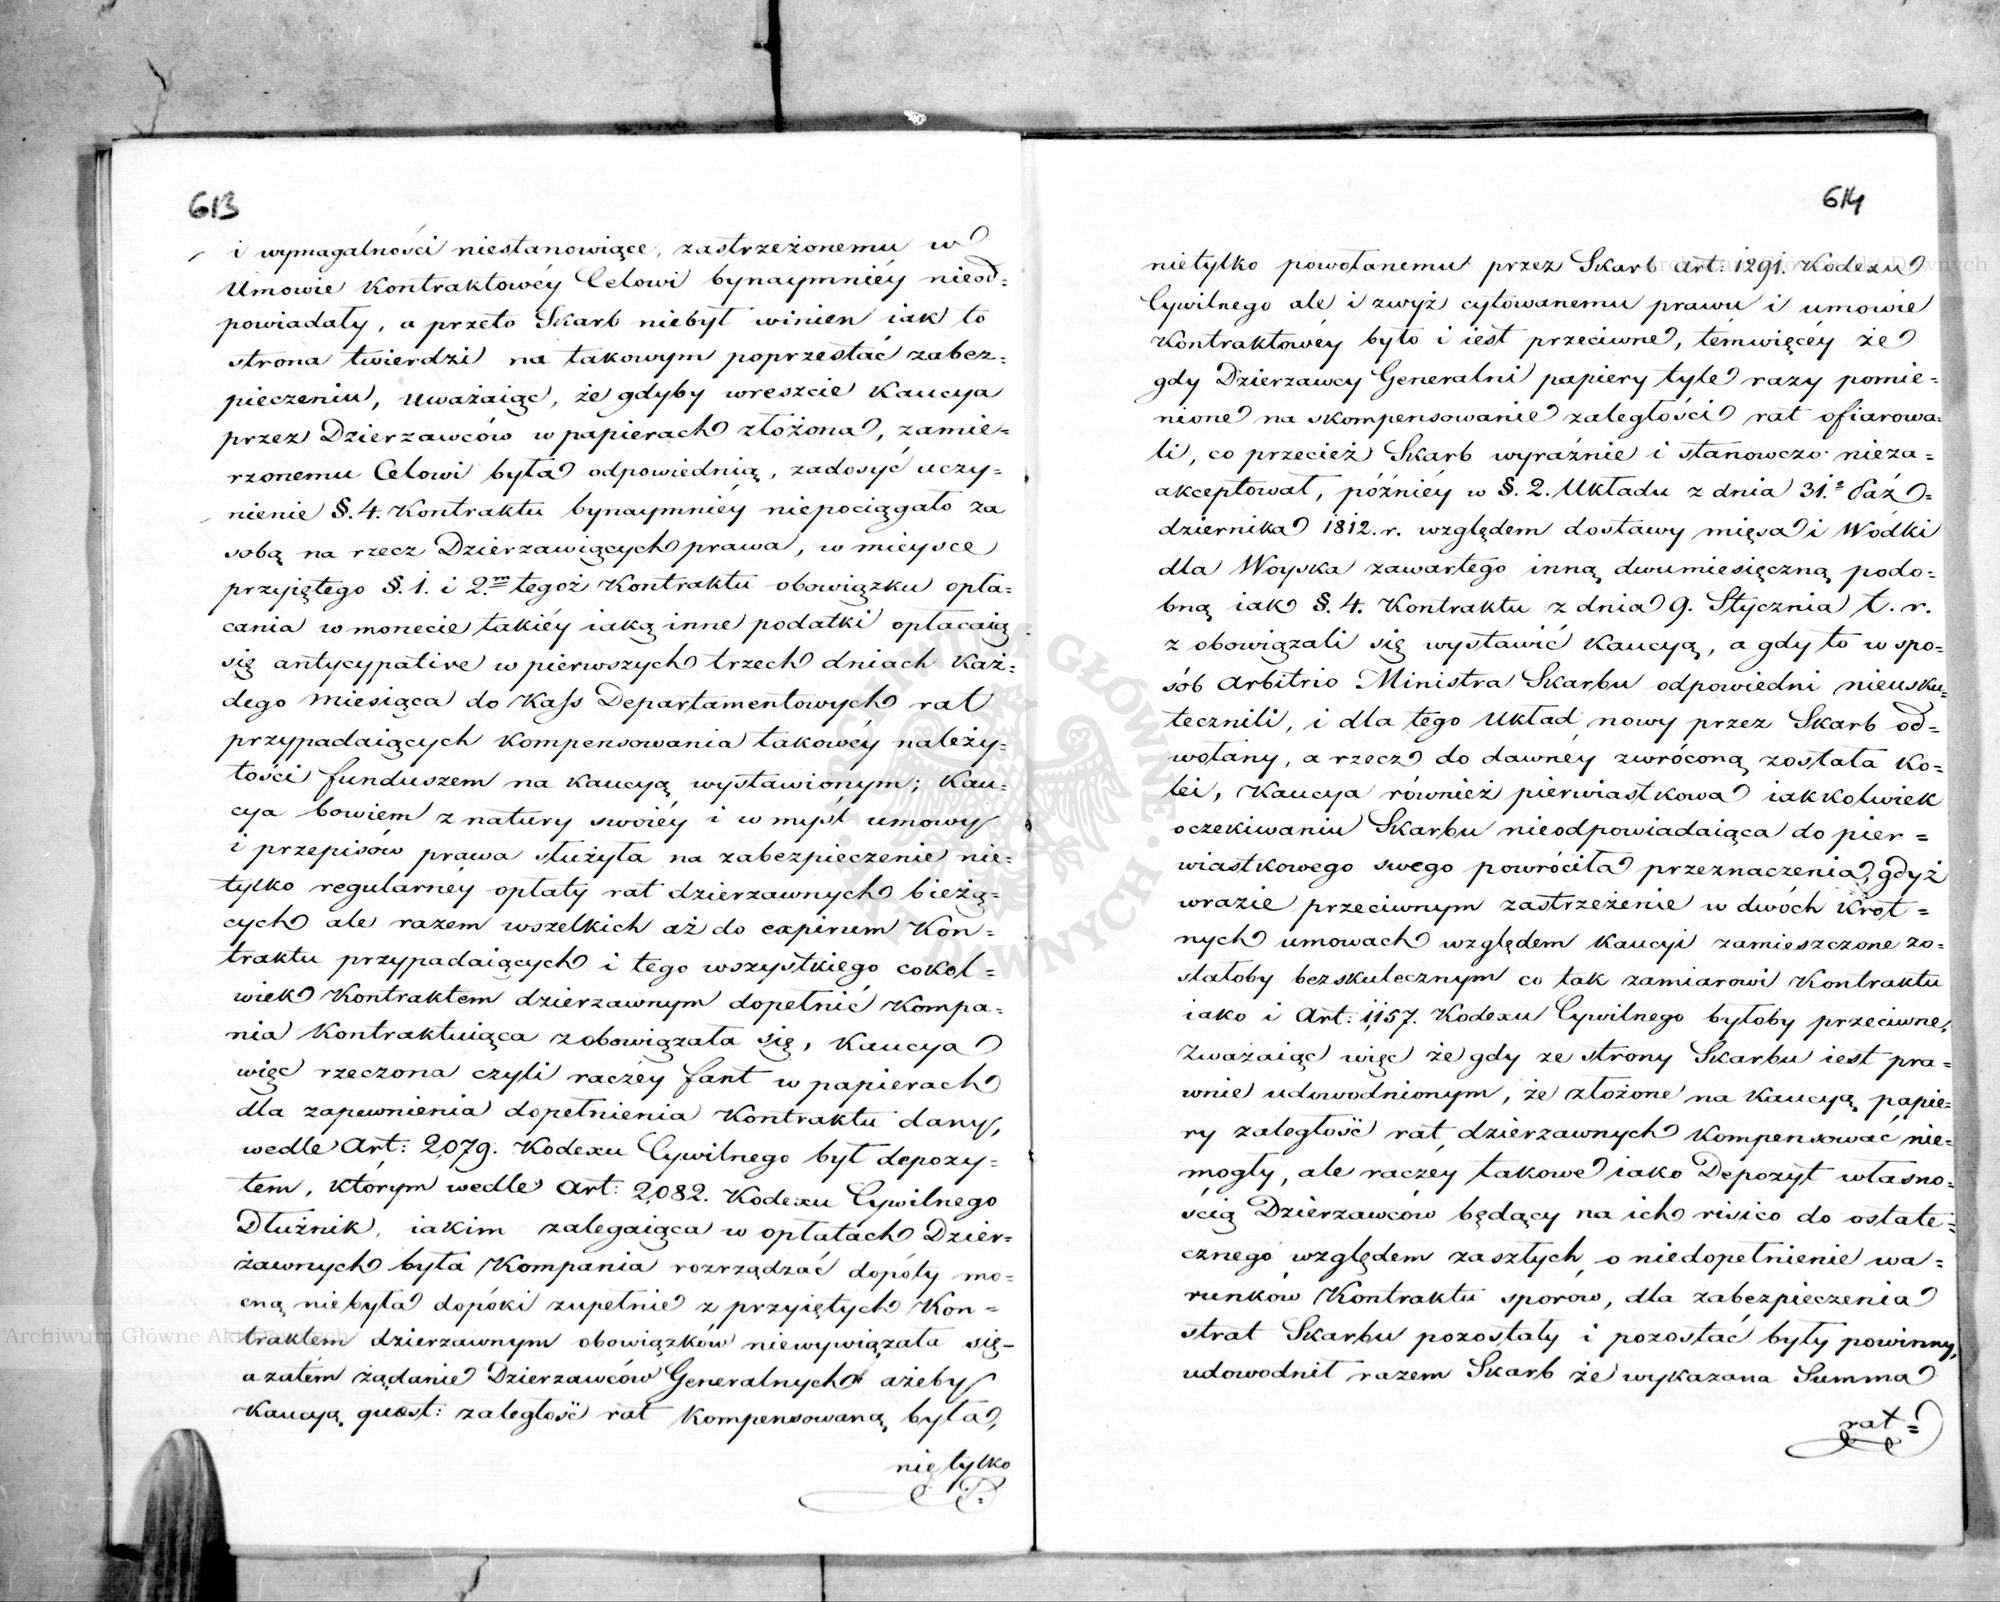 613
i wymagalności niestanowiące, zastrzeżonemu w
Umowie Kontraktowéy Celowi bynaymniéy nieod=
powiadały, a przeto Skarb niebył winien iak to
strona twierdzi na takowym poprzestać zabez=
pieczeniu, uważaiąc, że gdyby wreszcie Kaucya
przez Dzierzawców w papierach złożona, zamie=
rzonemu Celowi była odpowiednią, zadosyć uczy=
nienie §. 4. Kontraktu bynaymniéy niepociągało za
sobą na rzecz Dzierzawiących prawa, w mieysce
przyiętego §. 1. i 2.m tegoż Kontraktu obowiązku opła=
cania w monecie takiéy iaką inne podatki opłacaią
się antycypative w pierwszych trzech dniach Każ=
dego Miesiąca do Kass Departamentowych rat
przypadaiących Kompensowania takowéy należy=
tości funduszem na Kaucyą wystawionym; Kau=
cya bowiem z natury swoiéy i w myśl umowy
i przepisów prawa służyła na zabezpieczenie nie=
tylko regularnéy opłaty rat dzierzawnych bieżą=
cych ale razem wszelkich aż do expirum Kon=
traktu przypadaiących i tego wszystkiego cokol=
wiek Kontraktem dzierzawnym dopełnić Kompa=
nia Kontraktuiąca zobowiązała się, Kaucya
więc rzeczona czyli raczéy fant w papierach
dla zapewnienia dopełnienia Kontraktu dany,
wedle Art: 2,079. Kodexu Cywilnego był depozy=
tem, którym wedle Art: 2,082. Kodexu Cywilnego
Dłużnik, iakim zalegaiąca w opłatach Dzier=
żawnych była Kompania rozrządzać dopóty mo=
cną niebyła dopóki zupełnie z przyiętych Kon=
traktem dzierzawnym obowiązków niewywiązała się
a zatém żądanie Dzierzawców Generalnych ażeby
Kaucyą quest: zaległość rat Kompensowaną była,
nietylko
614
nietylko powołanemu przez Skarb Art: 1291. Kodexu
Cywilnego ale i zwyż cytowanemu prawu i umowie
Kontraktowéy było i iest przeciwne, témwięcéy że
gdy Dzierzawcy Generalni papiery tyle razy pomie=
nione na skompensowanie zaległości rat ofiarowa=
li, co przecież Skarb wyraźnie i stanowczo nieza=
akceptował, późniéy w §. 2. Układu z dnia 31. Paź=
dziernika 1812. r. względem dostawy mięsa i Wódki
dla Woyska zawartego inną dwumiesięczną podo=
bną iak §. 4. Kontraktu z dnia 9. Stycznia t. r.
zobowiązali się wystawić Kaucyą, a gdy to w spo=
sób Arbitrio Ministra Skarbu odpowiedni nieusku=
tecznili, i dla tego Układ nowy przez Skarb od=
wołany, a rzecz do dawnéy zwróconą została Ko=
lei, Kaucya również pierwiastkowa iakkolwiek
oczekiwaniu Skarbu nieodpowiadaiąca do pier=
wiastkowego swego powróciła przeznaczenia, gdyż
wrazie przeciwnym zastrzeżenie w dwóch Krot=
nych umowach względem Kaucyi zamieszczone zo=
stałoby bezskutecznym co tak zamiarowi Kontraktu
iako i Art: 1,157. Kodexu Cywilnego byłoby przeciwne,
Zważaiąc więc że gdy ze strony Skarbu iest pra=
wnie udowodnionym, że złożone na Kaucyą papie=
ry zaległość rat dzierzawnych Kompensować nie=
mogły, ale raczéy takowe iako Depozyt własno=
ścią Dzierzawców będący na ich risico do ostate=
cznego względem zaszłych o niedopełnienie wa=
runków Kontraktu sporów, dla zabezpieczenia
strat Skarbu pozostały i pozostać były powinny,
udowodnił razem Skarb że wykazana Summa
rat=
Archiwum Główne Akt Dawnych
ARCHIWUM GŁÓWNE AKT DAWNYCH
Archiwum Główne Akt Dawnych